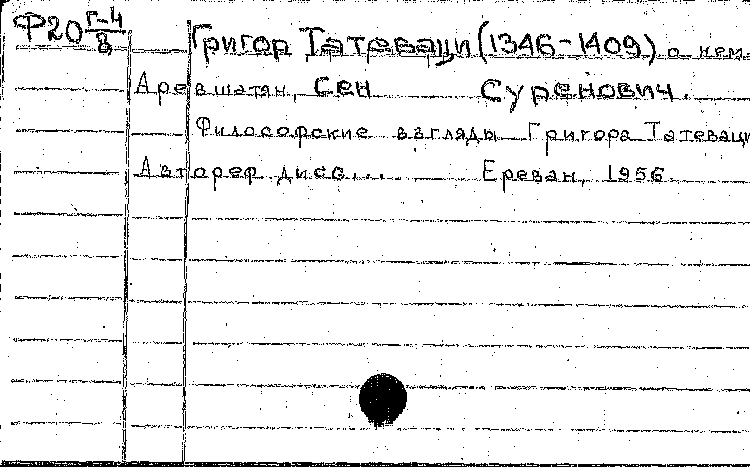 Ф20 Г-4/8
Григор Татеваци (1346-1409) о нем.
Аревшатян, Сен Суренович.
Философские взгляды Григора Татеваци
Автореф. дисс... Ереван, 1956.